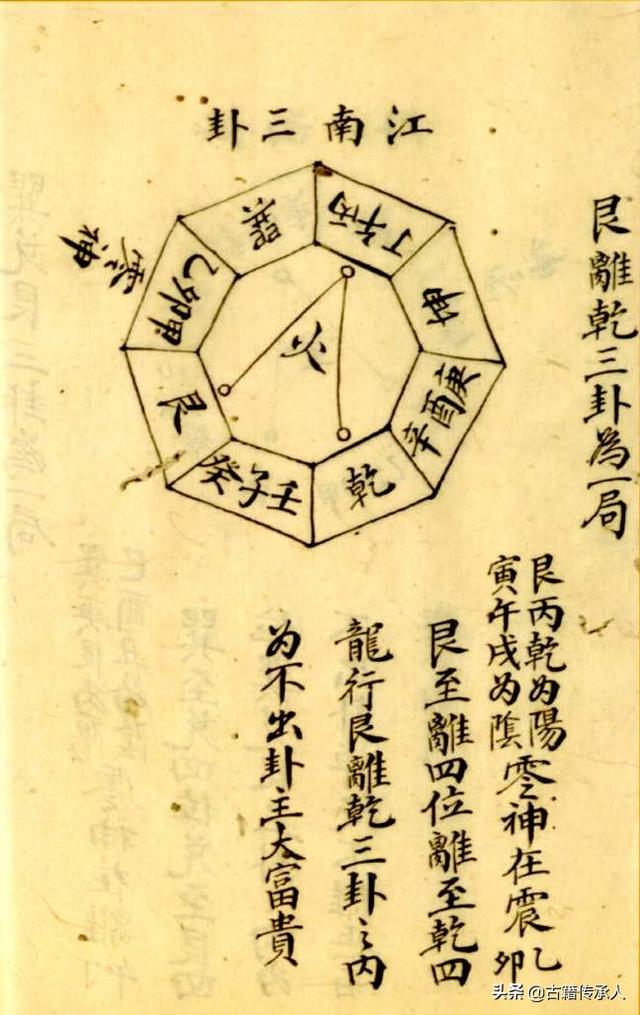 江南三卦
艮離乾三卦為一局
丙午丁
坤
庚酉辛
乾
壬子癸
艮
甲卯乙
巽
零神
火
艮丙乾为陽
寅午戌为陰
零神在震乙卯
艮至離四位離至乾四
龍行艮離乾三卦之内
为不出卦主大富貴
头条 @古籍传承人